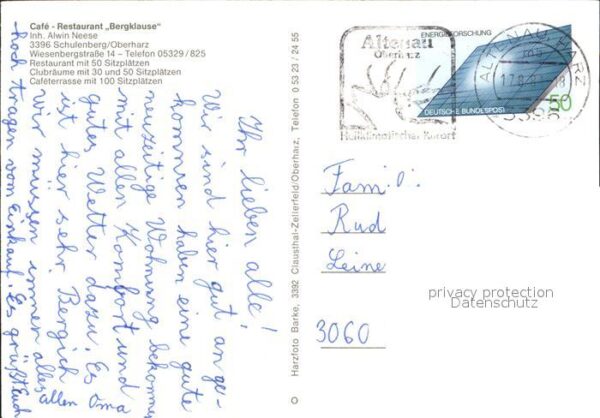 Café - Restaurant „Bergklause"
Inh. Alwin Neese
3396 Schulenberg/Oberharz
Wiesenbergstraße 14 – Telefon 05329 / 825
Restaurant mit 50 Sitzplätzen
Clubräume mit 30 und 50 Sitzplätzen
Caféterrasse mit 100 Sitzplätzen
Ihr lieben alle!
Wir sind hier gut ange-
kommen haben eine gute
neuzeitige Wohnung bekommen
mit allen Komfort und
gutes Wetter dazu. Es
ist hier sehr Bergich
wir müssen immer alles
hoch tragen vom Einkauf. Es grüßt Euch
allen Oma
Harzfoto Barke, 3392 Clausthal-Zellerfeld/Oberharz, Telefon 0 53 23 / 24 55
Altenau
Oberharz
Heilklimatischer Kurort
ENERGIEFORSCHUNG
DEUTSCHE BUNDESPOST
50
ALTENAU, HARZ
3396
Fam.
Rud
Leine
3060
privacy protection
Datenschutz